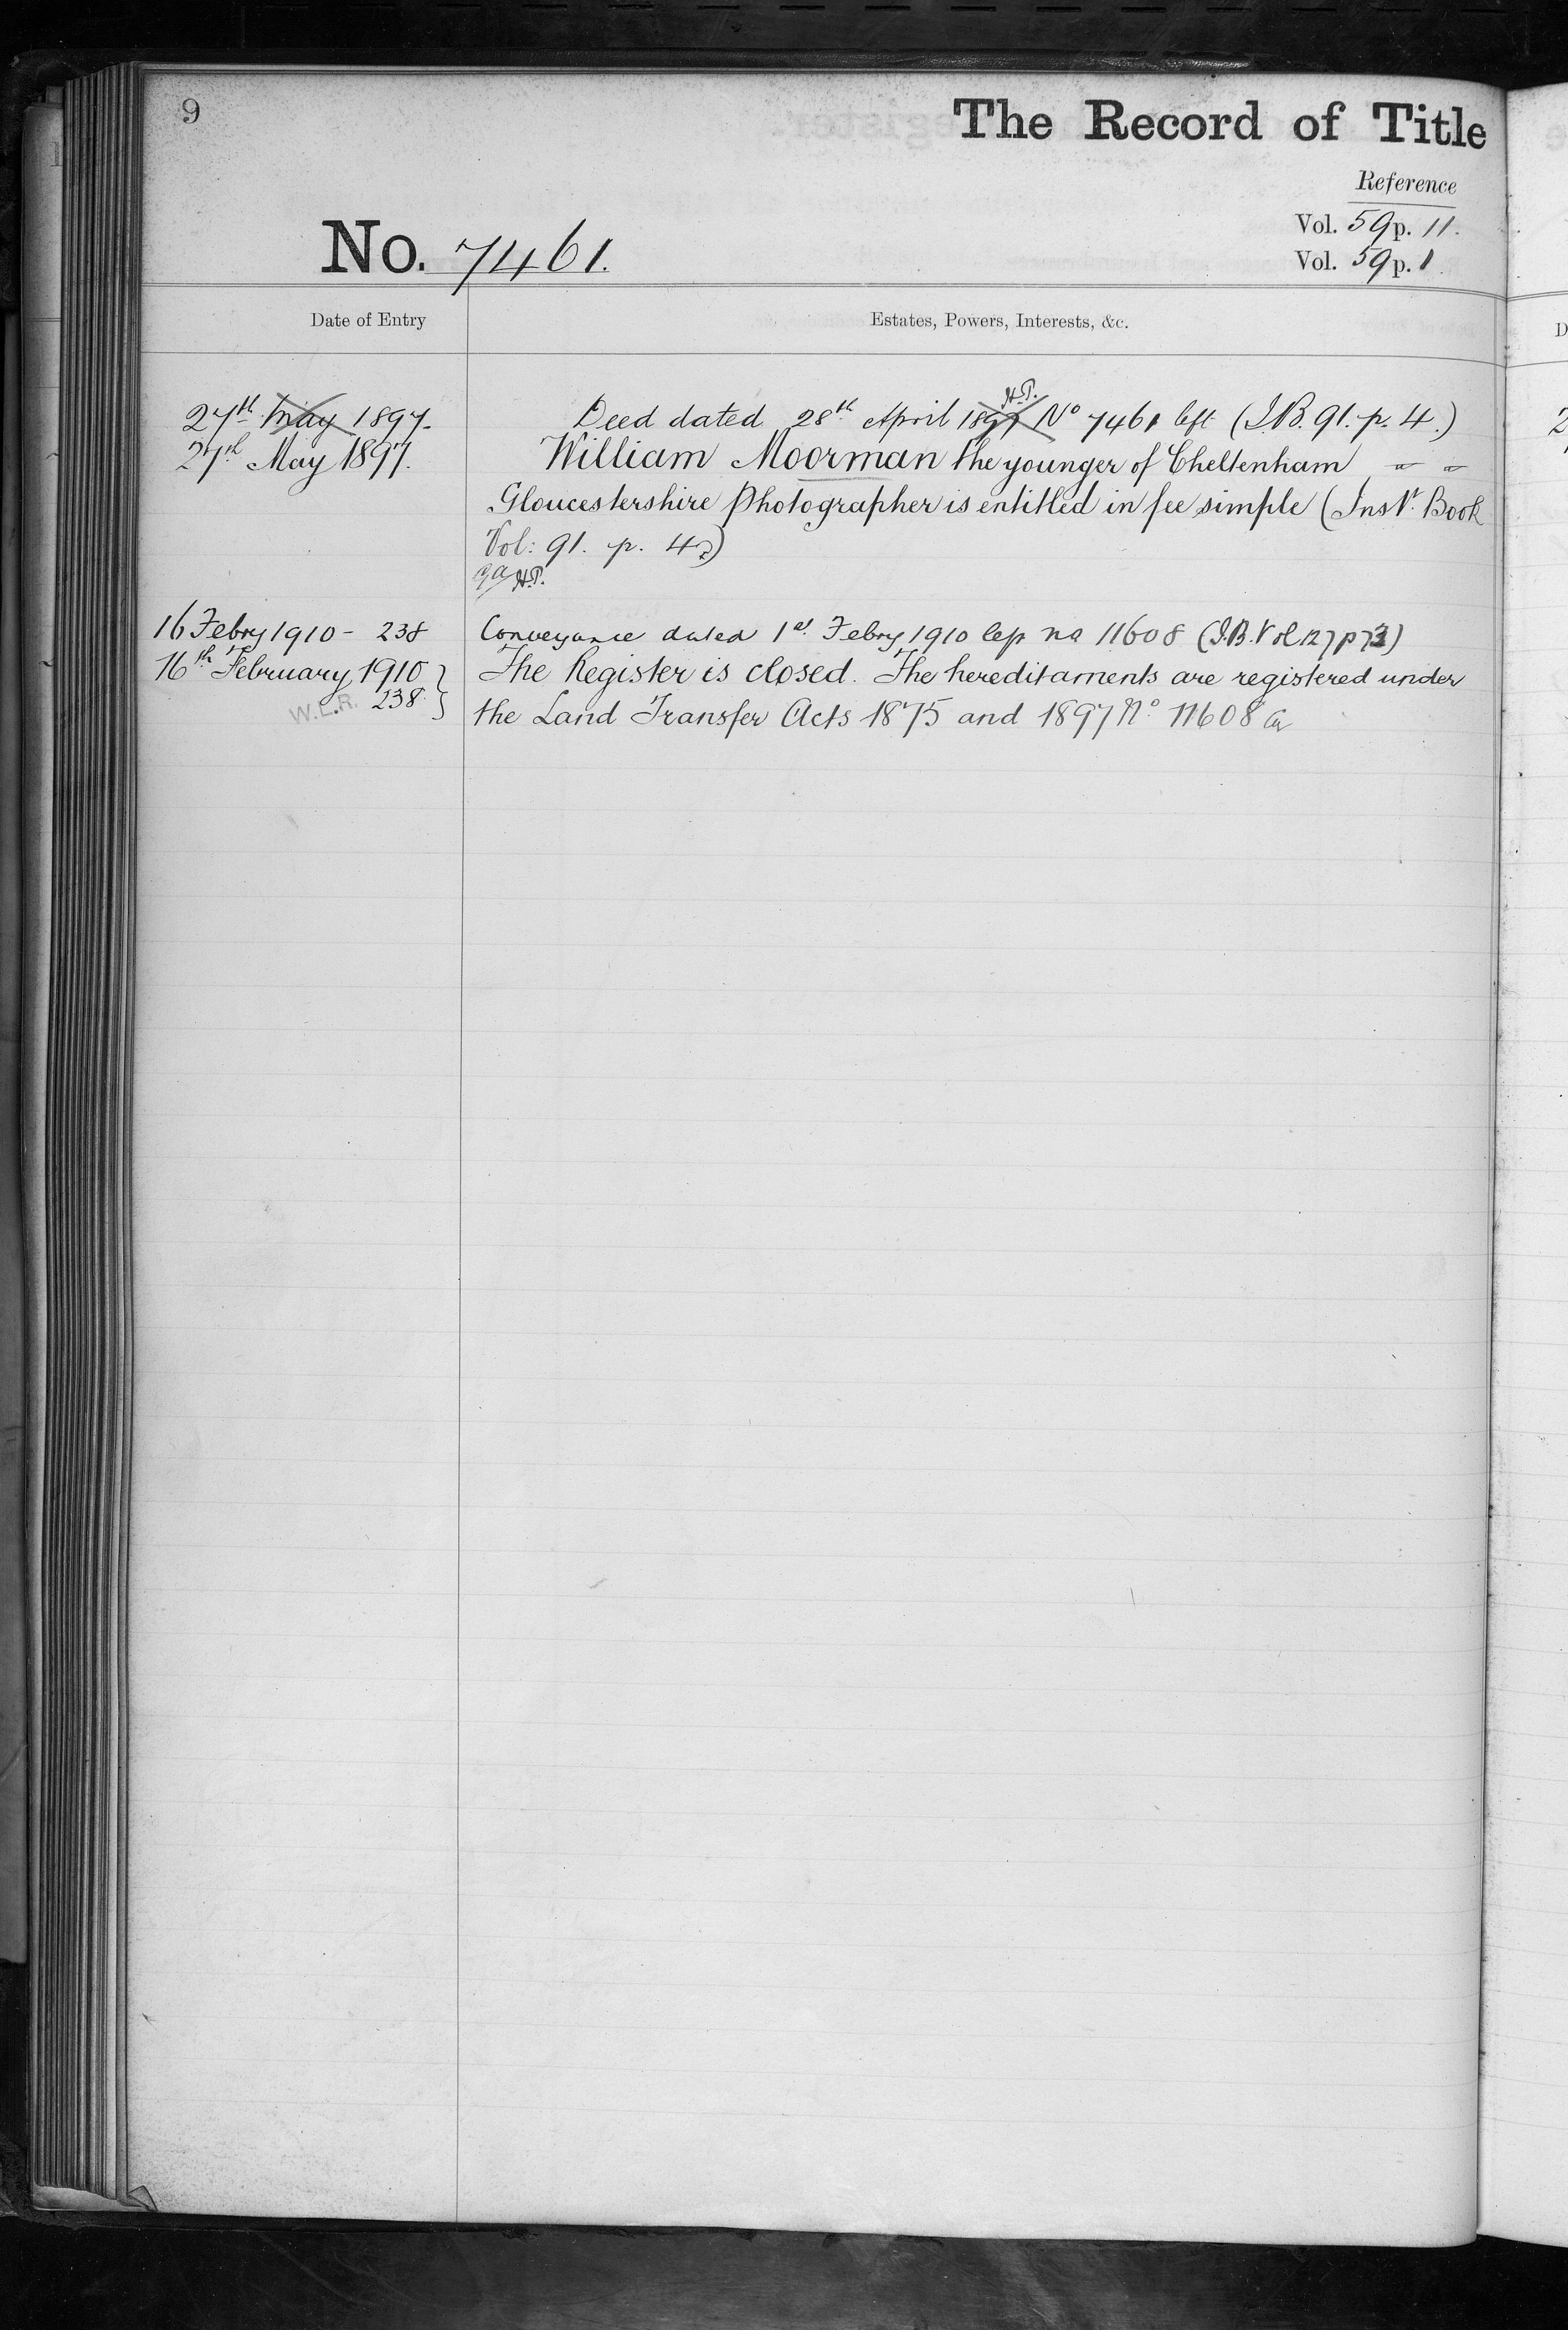 9
The Record of Title
Reference
Vol. 59 p. 11.
Vol. 59 p. 1
No. 7461.
Date of Entry
Estates, Powers, Interests, &c.
27th May 1897. Deed dated 28th April 1897 No 7461 left (I.B. 91. p. 4.)
H.P.
27th May 1897. William Moorman the younger of Cheltenham
Gloucestershire Photographer is entitled in fee simple (Inst. Book
Vol: 91. p. 4)
H.P.
16 Febry 1910 - 238 Conveyance dated 1st Febry 1910 left no 11608 (I.B. Vol 127 p 73)
16th February 1910 The Register is closed. The hereditaments are registered under
W.L.R. 238. the Land Transfer Acts 1875 and 1897 No. 11608